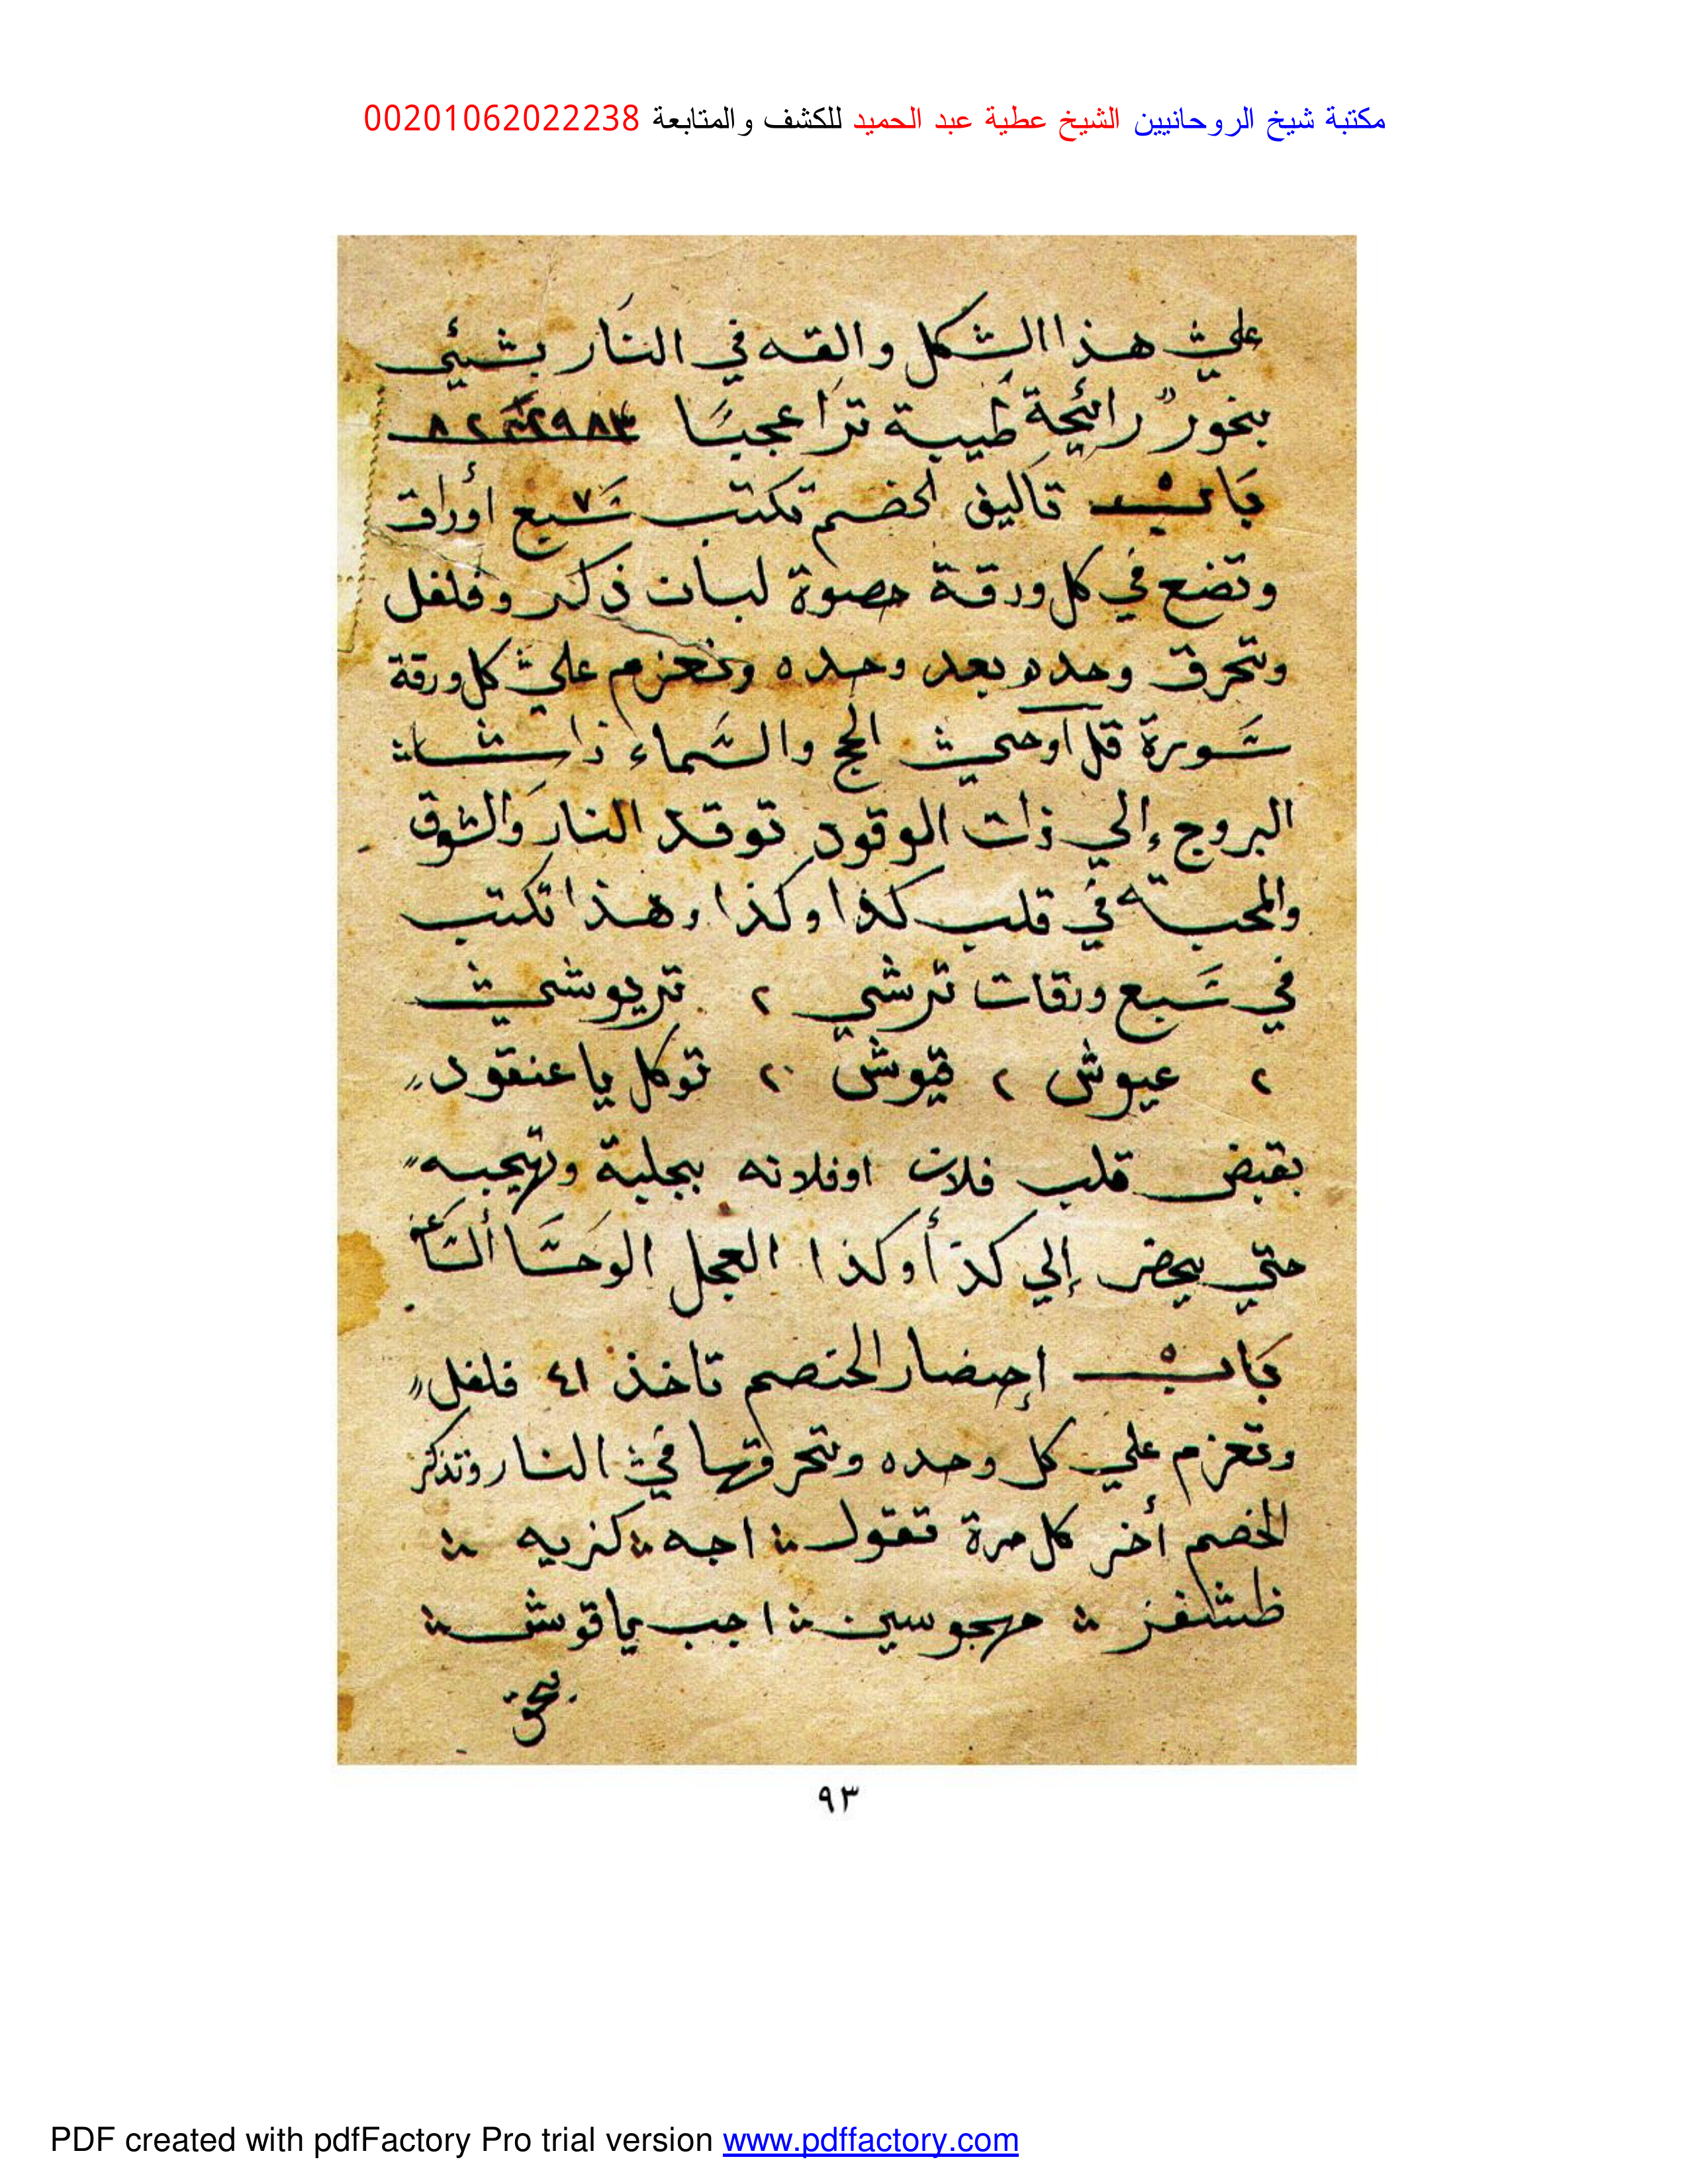 مكتبة شيخ الروحانيين الشيخ عطية عبد الحميد للكشف والمتابعة 00201062022238
علي هذا الشكل والقه في النار بشئي
بخور رائحة طيبة ترا عجبا
باب تاليف الخصم تكتب سبع ٧ أوراق
وتضع في كل ورقة حصوة لبان ذكر وفلفل
وتحرق وحده بعد وحده وتعزم علي كل ورقة
سورة قل أوحي الخ والسماء ذات
البروج إلي ذات الوقود توقد النار والشوق
والمحبة في قلب كذا وكذا وهذا تكتب
في سبع ورقات ترشي ٢ تريوشي
٢ عيوش ٢ قيوش ٢ توكل يا عنقود
بقبض قلب فلان اوفلانه بجلبة وتهيجيه
حتي يحضر إلي كذ أوكذا العجل الوحا الساعة
باب إحضار الخصم تاخذ ٤١ فلفل
وتعزم علي كل وحده وتحرقها في النار وتذكر
الخصم أخر كل مرة تقول اجه كزيه
طشفز مهجوسين اجب يا قوش
بحق
٩٣
PDF created with pdfFactory Pro trial version www.pdffactory.com